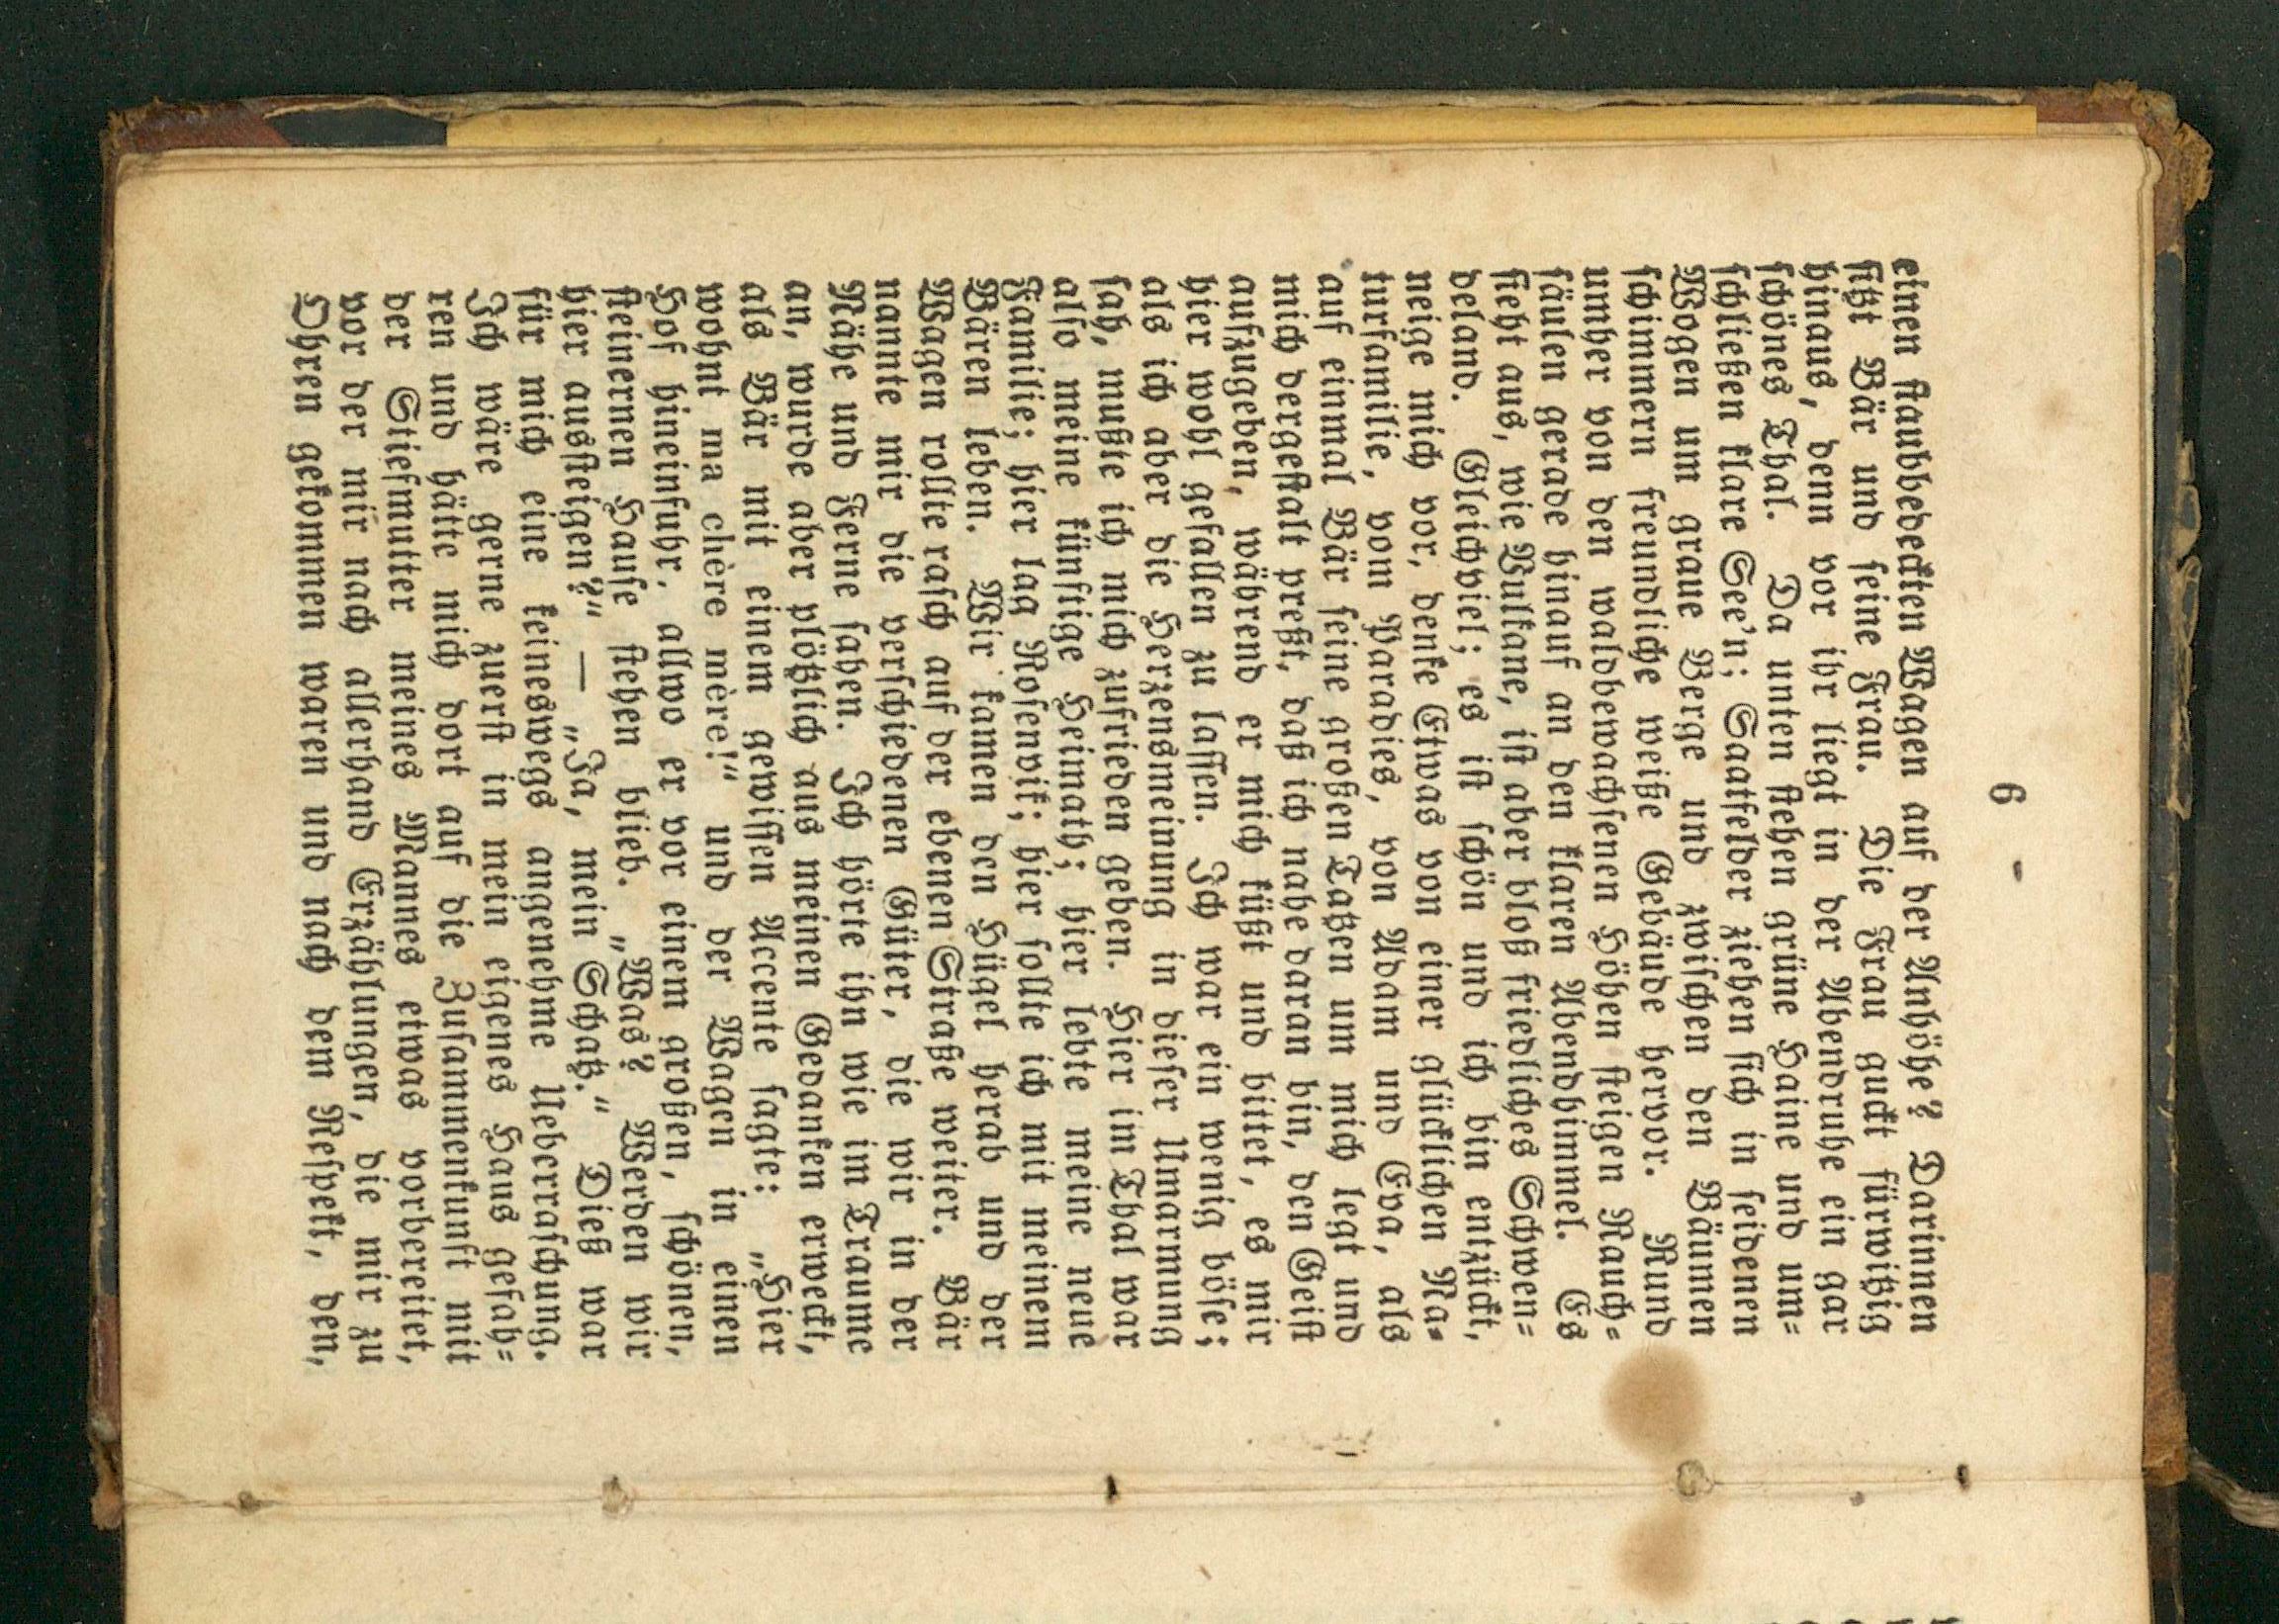 6 -
einen staubbedeckten Wagen auf der Anhöhe? Darinnen
sitzt Bär und seine Frau. Die Frau guckt fürwitzig
hinaus, denn vor ihr liegt in der Abendruhe ein gar
schönes Thal. Da unten stehen grüne Haine und um-
schließen klare See'n; Saatfelder ziehen sich in seidenen
Wogen um graue Berge und zwischen den Bäumen
schimmern freundliche weiße Gebäude hervor. Rund
umher von den waldbewachsenen Höhen steigen Rauch-
säulen gerade hinauf an den klaren Abendhimmel. Es
sieht aus, wie Vulkane, ist aber bloß friedliches Schwen-
deland. Gleichviel; es ist schön und ich bin entzückt,
neige mich vor, denke Etwas von einer glücklichen Na-
turfamilie, vom Paradies, von Adam und Eva, als
auf einmal Bär seine großen Tatzen um mich legt und
mich dergestalt preßt, daß ich nahe daran bin, den Geist
aufzugeben, während er mich küßt und bittet, es mir
hier wohl gefallen zu lassen. Ich war ein wenig böse;
als ich aber die Herzensmeinung in dieser Umarmung
sah, mußte ich mich zufrieden geben. Hier im Thal war
also meine künftige Heimath; hier lebte meine neue
Familie; hier lag Rosenvik; hier sollte ich mit meinem
Bären leben. Wir kamen den Hügel herab und der
Wagen rollte rasch auf der ebenen Straße weiter. Bär
nannte mir die verschiedenen Güter, die wir in der
Nähe und Ferne sahen. Ich hörte ihn wie im Traume
an, wurde aber plötzlich aus meinen Gedanken erweckt,
als Bär mit einem gewissen Accente sagte: „Hier
wohnt ma chère mère!“ und der Wagen in einen
Hof hineinfuhr, allwo er vor einem großen, schönen,
steinernen Hause stehen blieb. „Was? Werden wir
hier aussteigen?“ — „Ja, mein Schatz.“ Dieß war
für mich eine keineswegs angenehme Ueberraschung.
Ich wäre gerne zuerst in mein eigenes Haus gefah-
ren und hätte mich dort auf die Zusammenkunft mit
der Stiefmutter meines Mannes etwas vorbereitet,
vor der mir nach allerhand Erzählungen, die mir zu
Ohren gekommen waren und nach dem Respekt, den,